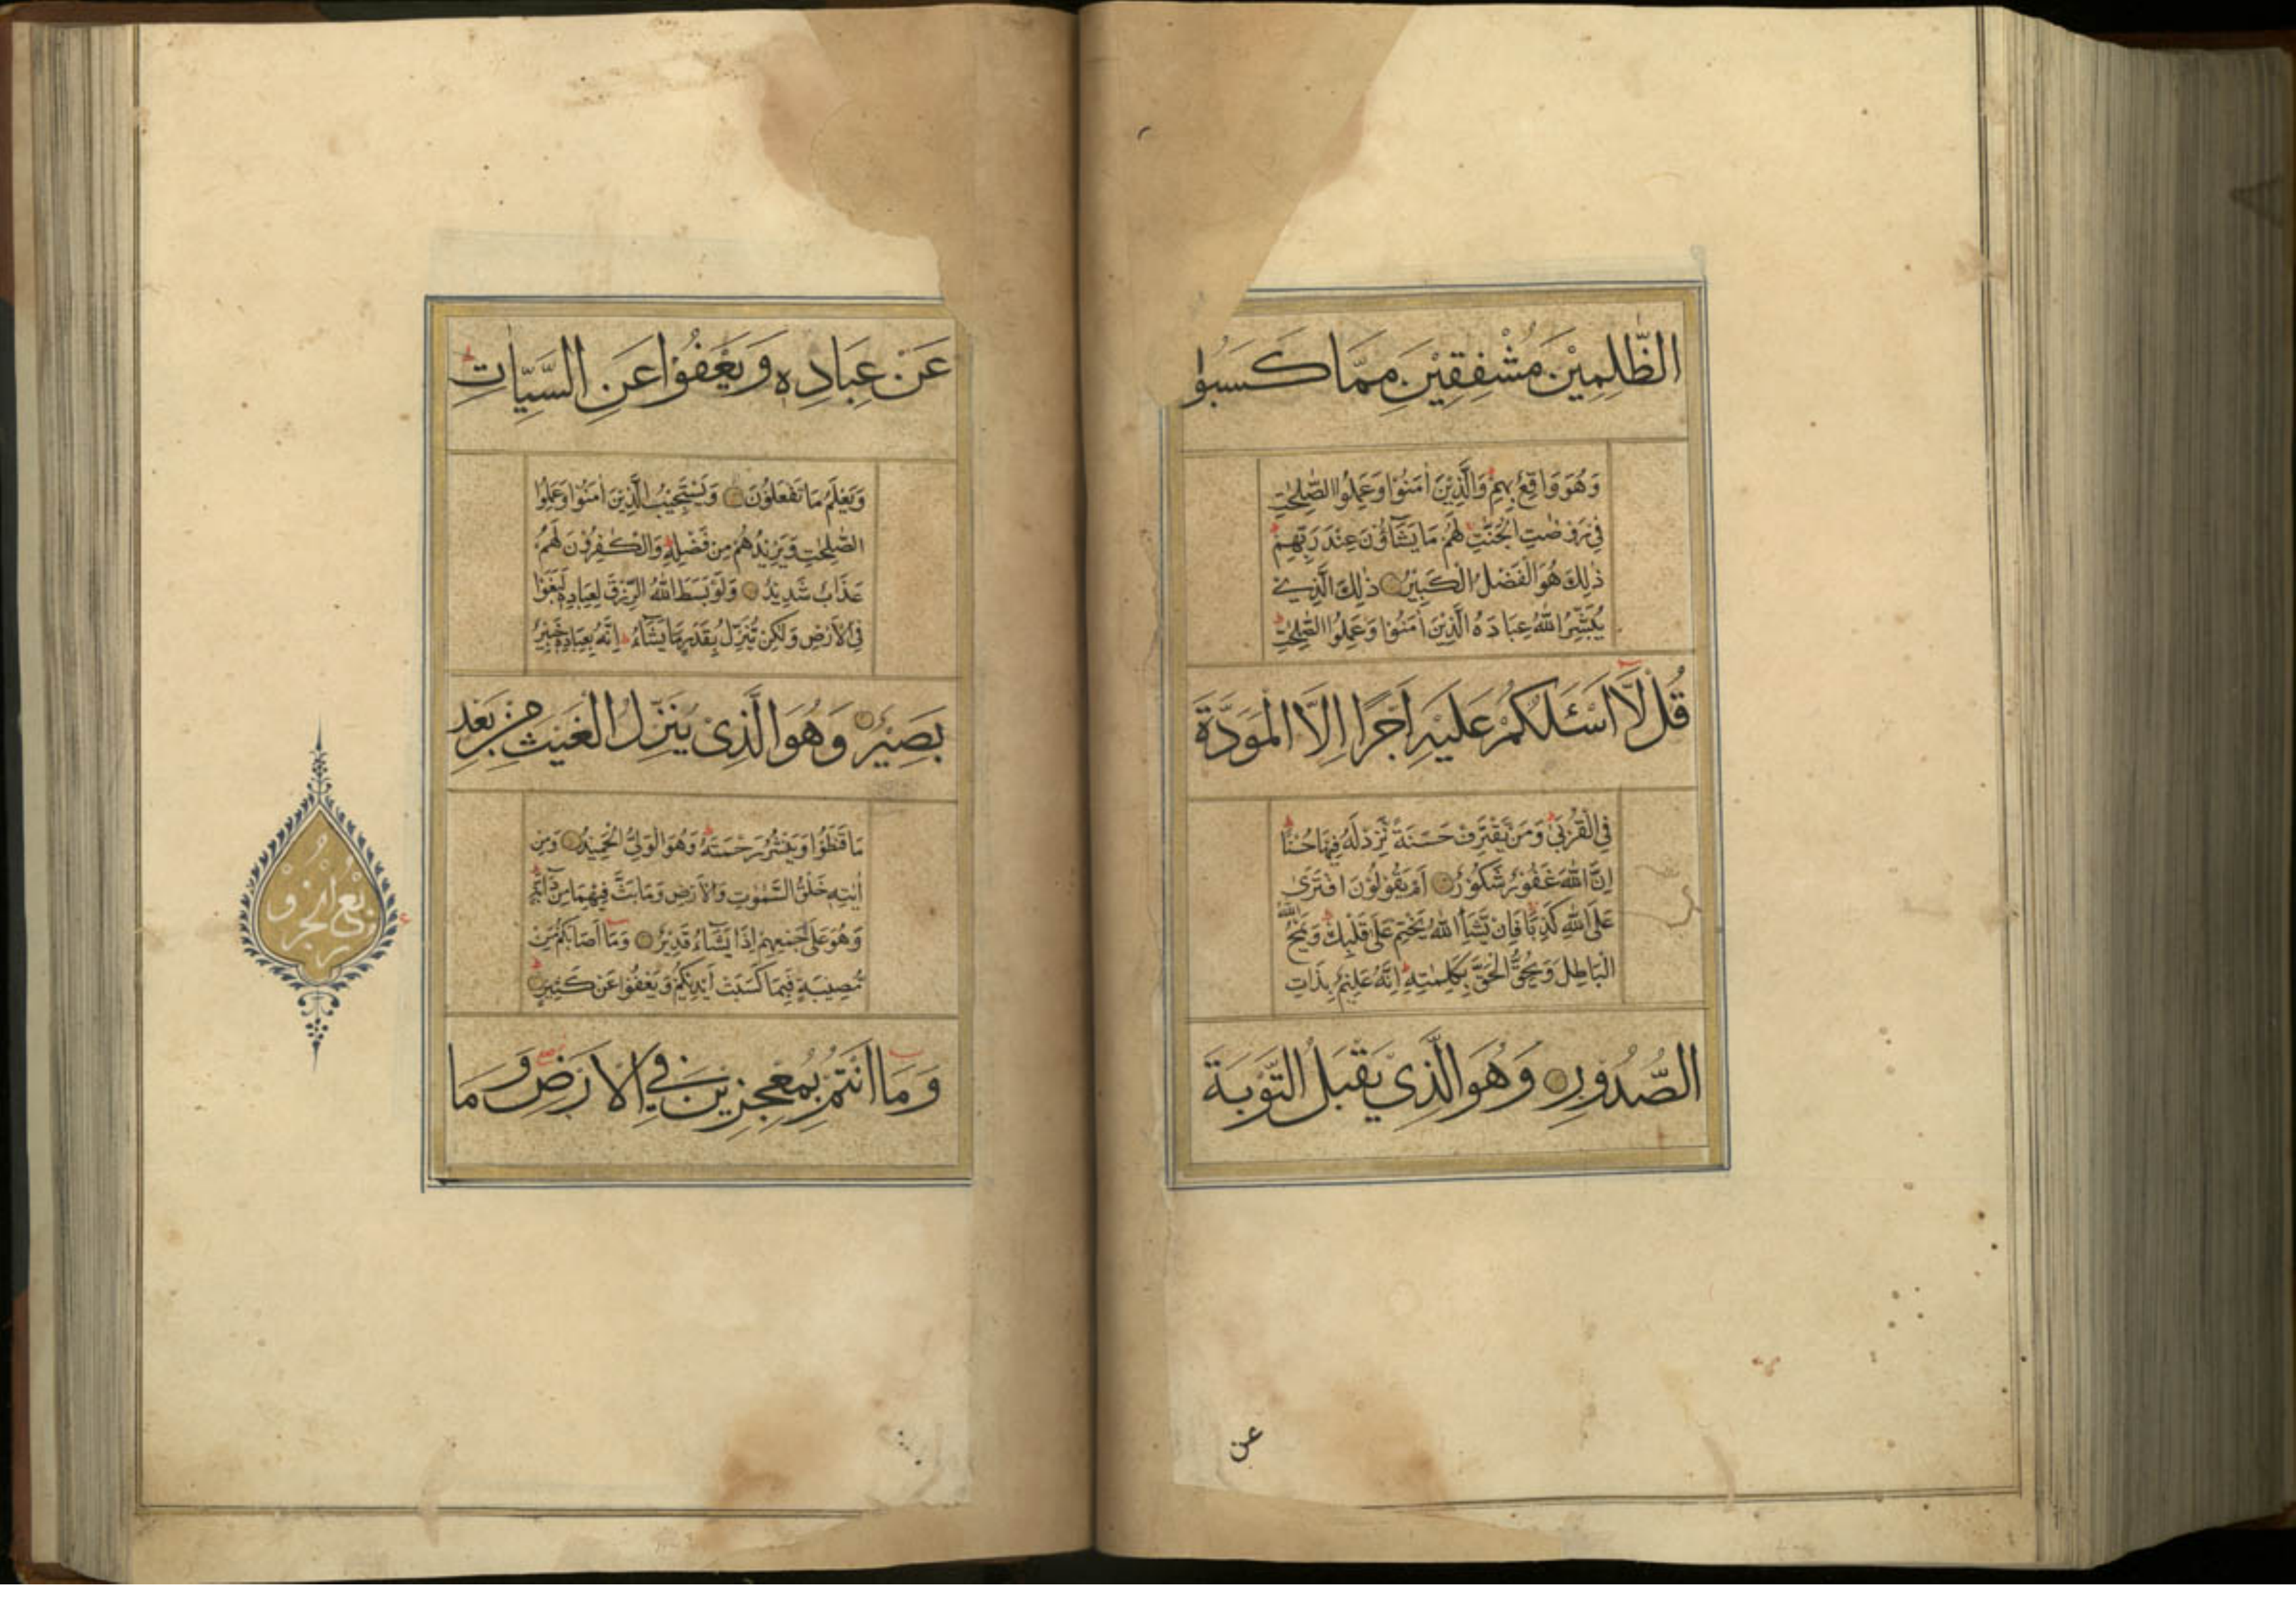 الظّٰلِمِيْنَ مُشْفِقِيْنَ مِمَّا كَسَبُوْا
وَهُوَ وَاقِعٌۢ بِهِمْ وَالَّذِيْنَ اٰمَنُوْا وَعَمِلُوا الصّٰلِحٰتِ
فِيْ رَوْضٰتِ الْجَنّٰتِ لَهُمْ مَا يَشَآؤُنَ عِنْدَ رَبِّهِمْ
ذٰلِكَ هُوَ الْفَضْلُ الْكَبِيْرُ ذٰلِكَ الَّذِيْ
يُبَشِّرُ اللّٰهُ عِبَادَهُ الَّذِيْنَ اٰمَنُوْا وَعَمِلُوا الصّٰلِحٰتِ
قُلْ لَّآ اَسْـَٔلُكُمْ عَلَيْهِ اَجْرًا اِلَّا الْمَوَدَّةَ
فِي الْقُرْبٰى وَمَنْ يَّقْتَرِفْ حَسَنَةً نَّزِدْ لَهٗ فِيْهَا حُسْنًا
اِنَّ اللّٰهَ غَفُوْرٌ شَكُوْرٌ اَمْ يَقُوْلُوْنَ افْتَرٰى
عَلَى اللّٰهِ كَذِبًا فَاِنْ يَّشَاِ اللّٰهُ يَخْتِمْ عَلٰى قَلْبِكَ وَيَمْحُ اللّٰهُ
الْبَاطِلَ وَيُحِقُّ الْحَقَّ بِكَلِمٰتِهٖ اِنَّهٗ عَلِيْمٌۢ بِذَاتِ
الصُّدُوْرِ وَهُوَ الَّذِيْ يَقْبَلُ التَّوْبَةَ
عن
عَنْ عِبَادِهٖ وَيَعْفُوْا عَنِ السَّيِّاٰتِ
وَيَعْلَمُ مَا تَفْعَلُوْنَ وَيَسْتَجِيْبُ الَّذِيْنَ اٰمَنُوْا وَعَمِلُوا
الصّٰلِحٰتِ وَيَزِيْدُهُمْ مِنْ فَضْلِهٖ وَالْكٰفِرُوْنَ لَهُمْ
عَذَابٌ شَدِيْدٌ وَلَوْ بَسَطَ اللّٰهُ الرِّزْقَ لِعِبَادِهٖ لَبَغَوْا
فِي الْاَرْضِ وَلٰكِنْ يُّنَزِّلُ بِقَدَرٍ مَّا يَشَآءُ اِنَّهٗ بِعِبَادِهٖ خَبِيْرٌ
بَصِيْرٌ وَهُوَ الَّذِيْ يُنَزِّلُ الْغَيْثَ مِنْ بَعْدِ
مَا قَنَطُوْا وَيَنْشُرُ رَحْمَتَهٗ وَهُوَ الْوَلِيُّ الْحَمِيْدُ وَمِنْ
اٰيٰتِهٖ خَلْقُ السَّمٰوٰتِ وَالْاَرْضِ وَمَا بَثَّ فِيْهِمَا مِنْ دَآبَّةٍ
وَهُوَ عَلٰى جَمْعِهِمْ اِذَا يَشَآءُ قَدِيْرٌ وَمَآ اَصَابَكُمْ مِّنْ
مُّصِيْبَةٍ فَبِمَا كَسَبَتْ اَيْدِيْكُمْ وَيَعْفُوْا عَنْ كَثِيْرٍ
وَمَآ اَنْتُمْ بِمُعْجِزِيْنَ فِي الْاَرْضِ وَمَا